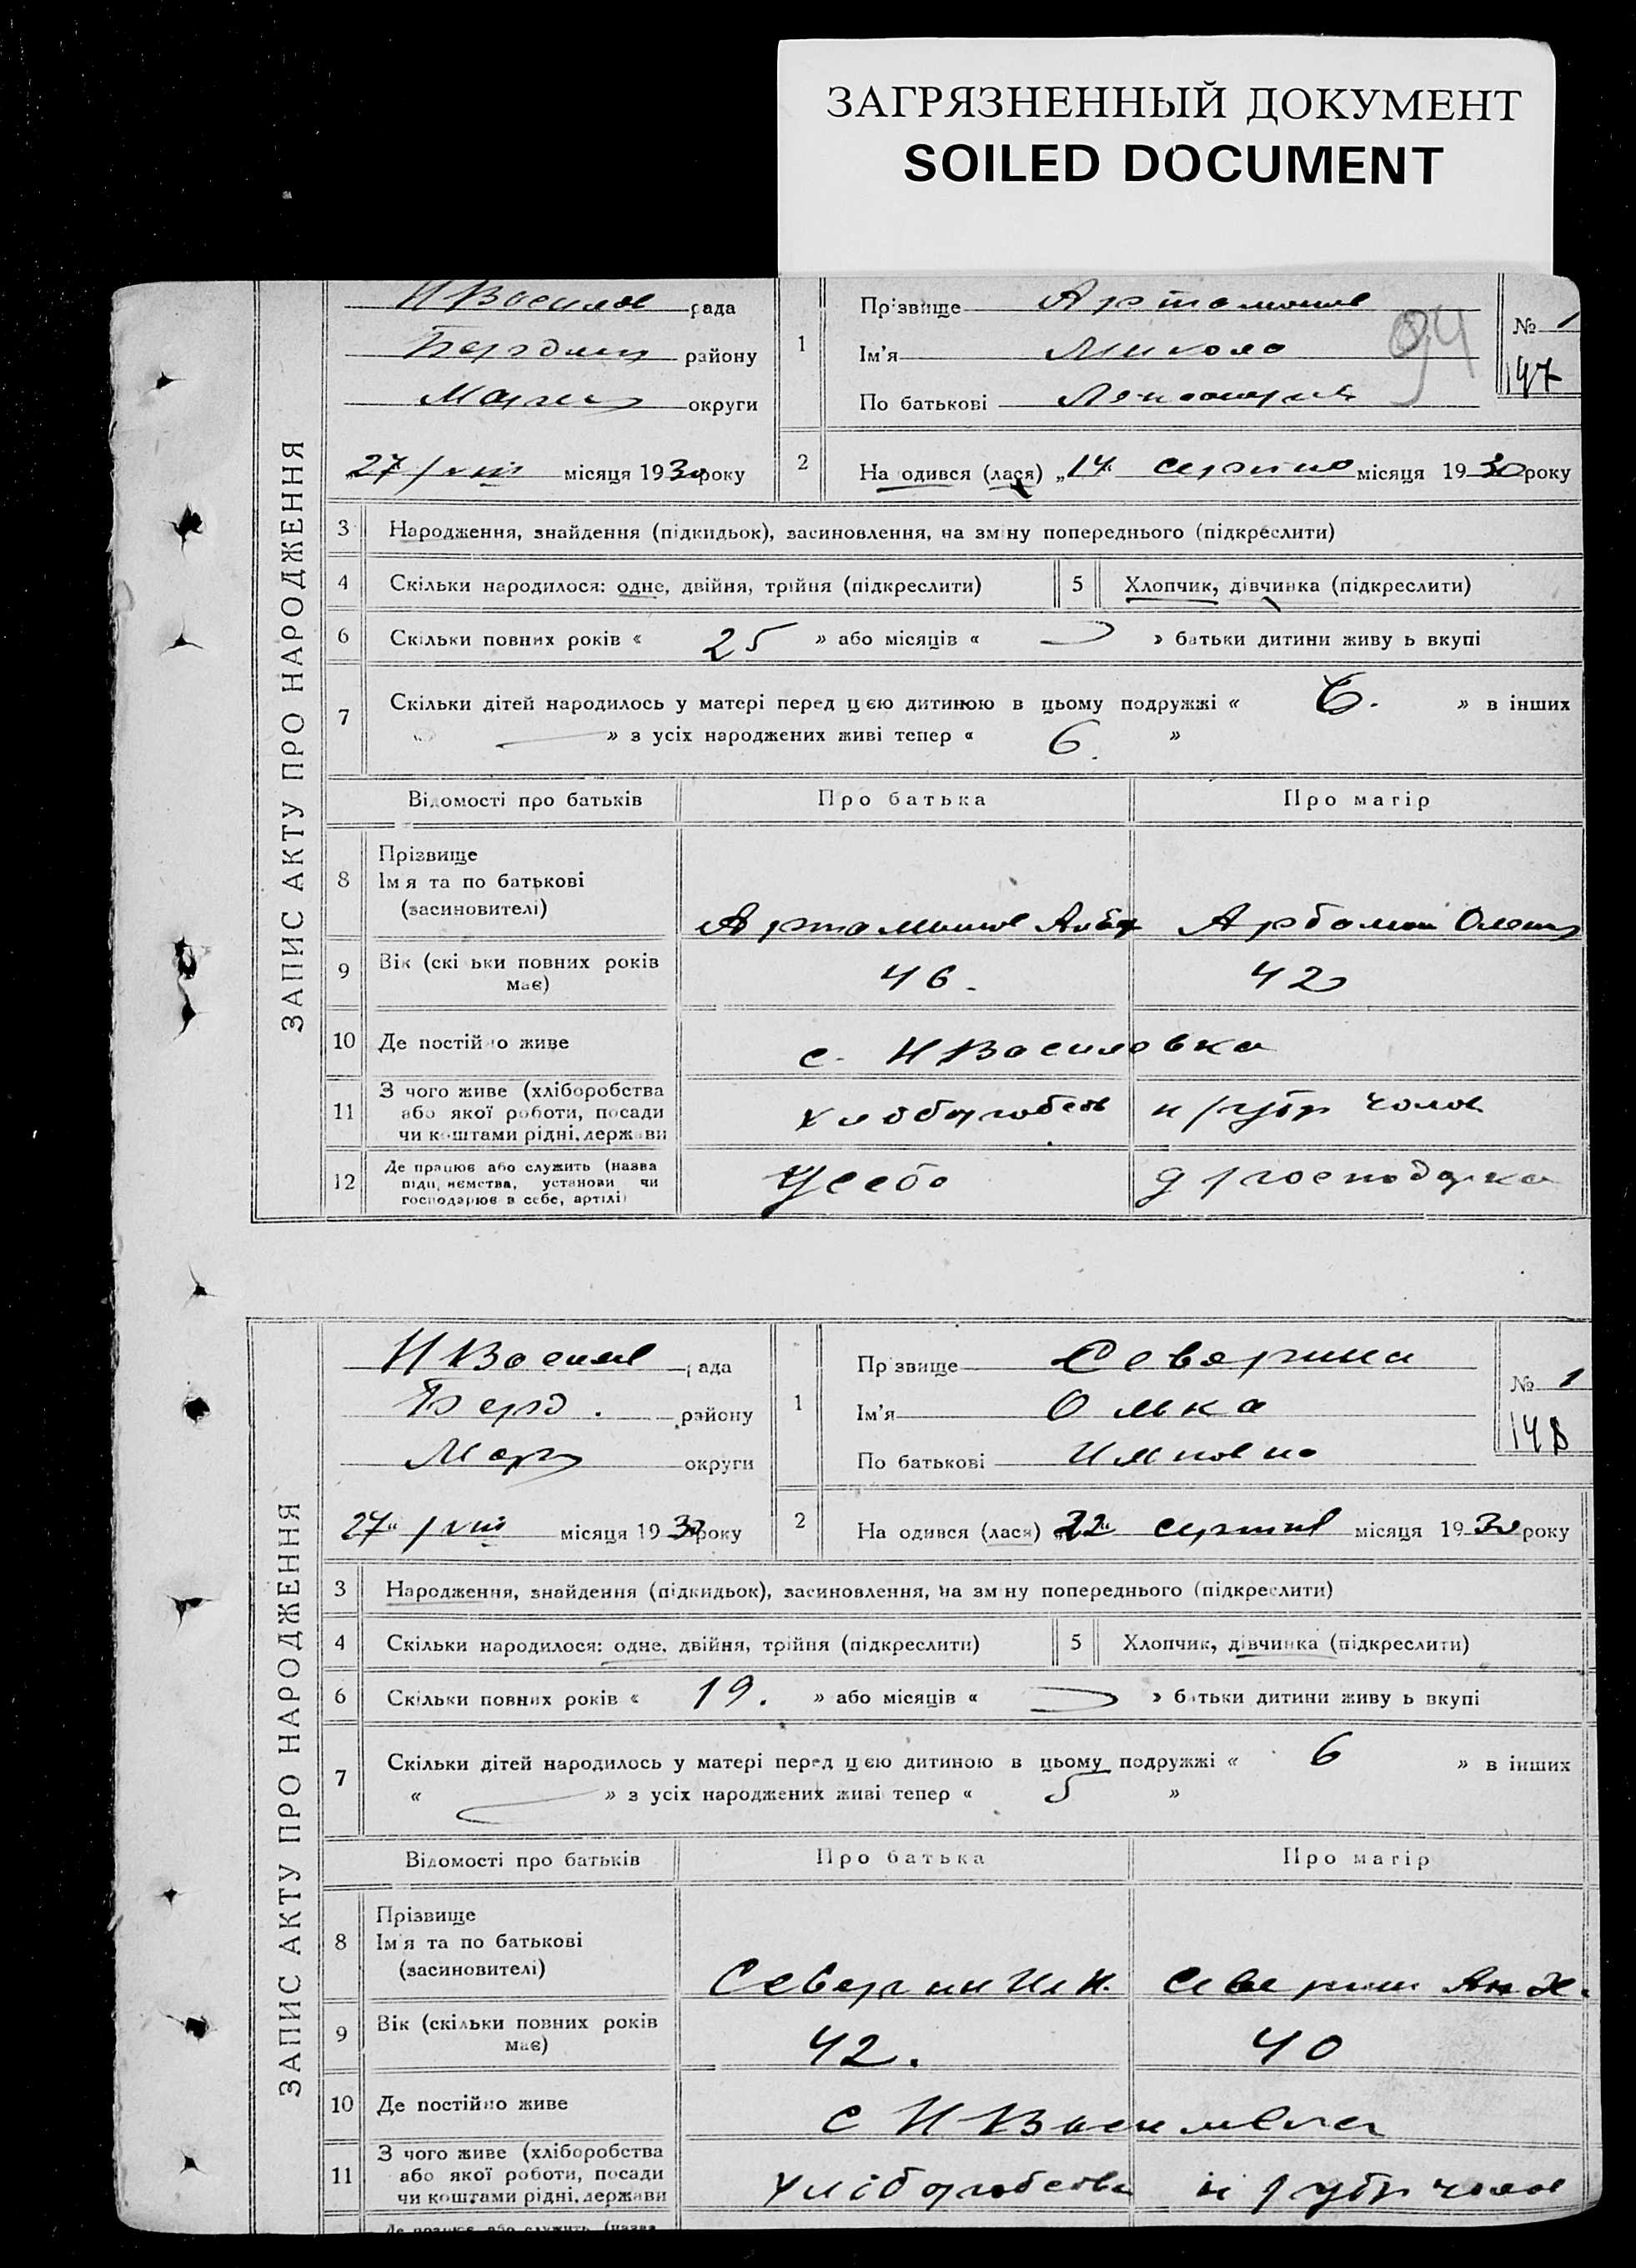 ЗАГРЯЗНЕННЫЙ ДОКУМЕНТ
SOILED DOCUMENT
ЗАПИС АКТУ ПРО НАРОДЖЕННЯ
Н Василов рада
району
округи
27/VIII місяця 1930 року
1
Прізвище Артамонов
Ім'я Микола
По батькові
94
№ 1
147
2
Народився (лася) „14 серпня місяця 1930 року
3 Народження, знайдення (підкидьок), засиновлення, на зміну попереднього (підкреслити)
4 Скільки народилося: одне, двійня, трійня (підкреслити)
5 Хлопчик, дівчинка (підкреслити)
6 Скільки повних років « 25 » або місяців « » батьки дитини живуть вкупі
7 Скільки дітей народилось у матері перед цією дитиною в цьому подружжі « 6. » в інших
« — » з усіх народжених живі тепер « 6. »
Відомості про батьків
Про батька
Про матір
8 Прізвище
Ім'я та по батькові
(засиновителі)
Артамонов
9 Вік (скільки повних років
має)
46.
42
10 Де постійно живе
с. Н Василовка
11 З чого живе (хліборобства
або якої роботи, посади
чи коштами рідні, держави
хліборобств
н/утр чолов
12 Де працює або служить (назва
підприємства, установи чи
господарює в себе, артілі)
У себе
д/господарка
ЗАПИС АКТУ ПРО НАРОДЖЕННЯ
Н Василов рада
Берд. району
округи
27" /VIII місяця 1930 року
1
Прізвище Северина
Ім'я Олька
По батькові
№ 1
148
2
Народився (лася) „22" серпня місяця 1930 року
3 Народження, знайдення (підкидьок), засиновлення, на зміну попереднього (підкреслити)
4 Скільки народилося: одне, двійня, трійня (підкреслити)
5 Хлопчик, дівчинка (підкреслити)
6 Скільки повних років « 19. » або місяців « » батьки дитини живуть вкупі
7 Скільки дітей народилось у матері перед цією дитиною в цьому подружжі « 6 » в інших
« — » з усіх народжених живі тепер « 5 »
Відомості про батьків
Про батька
Про матір
8 Прізвище
Ім'я та по батькові
(засиновителі)
Северин Ил И.
Северин
9 Вік (скільки повних років
має)
42.
40
10 Де постійно живе
с Н Василовка
11 З чого живе (хліборобства
або якої роботи, посади
чи коштами рідні, держави
хліборобства
н/утр чолов
Де працює або служить (назва